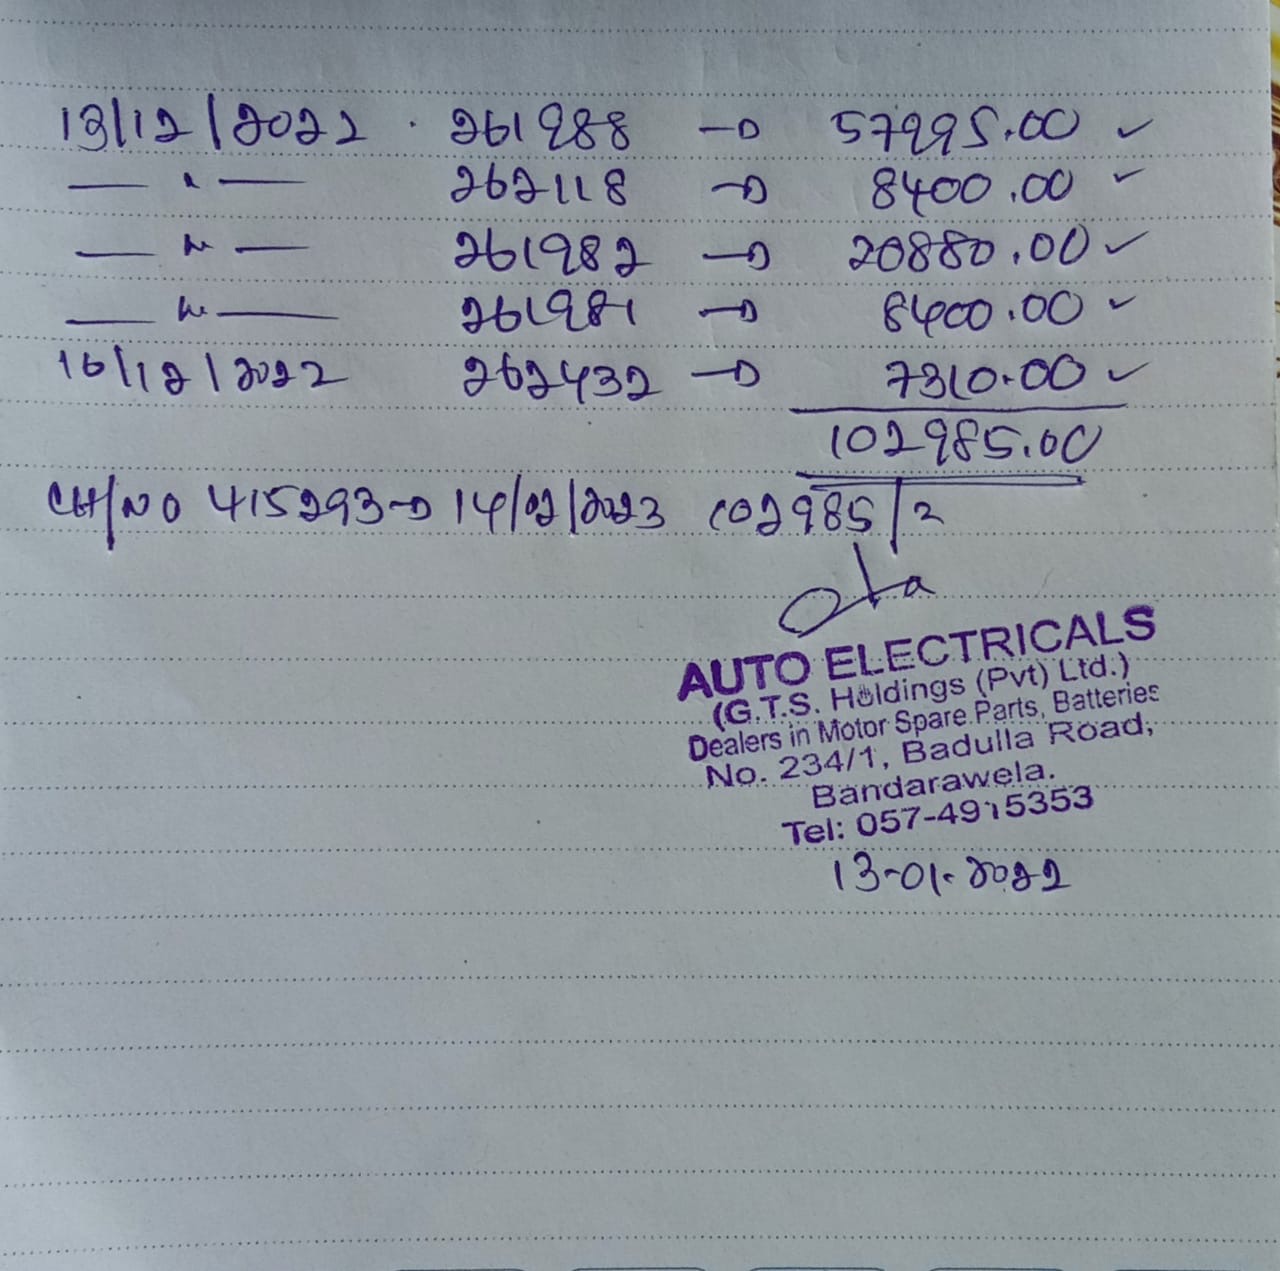 13/12/2022 . 261988 → 57995.00 ✓
— " — 262118 → 8400.00 ✓
— " — 261982 → 20880.00 ✓
— " — 261981 → 8400.00 ✓
16/12/2022 262432 → 7310.00 ✓
102985.00
CH/NO 415293 → 14/02/2023 102985/2
AUTO ELECTRICALS
(G.T.S. Holdings (Pvt) Ltd.)
Dealers in Motor Spare Parts, Batteries
No. 234/1, Badulla Road,
Bandarawela.
Tel: 057-4915353
13-01-2022